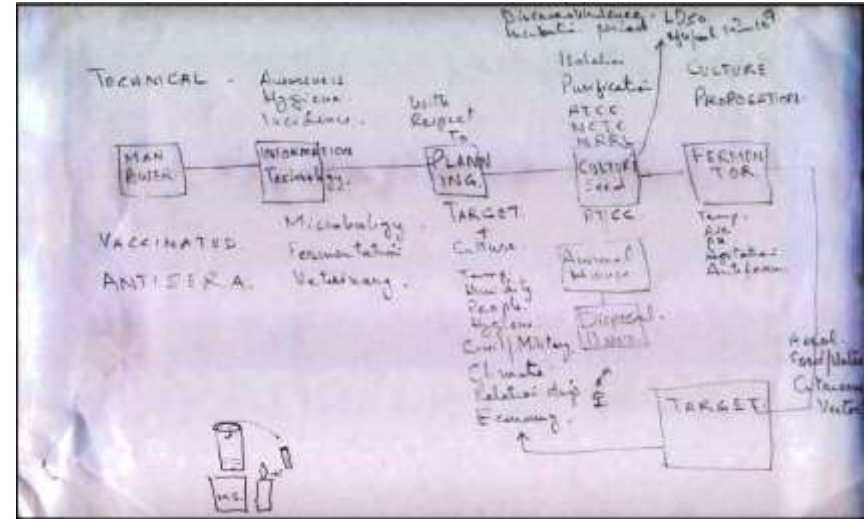 TECHNICAL.
Awareness
Hygiene
Incidence.
With
Respect
To
Isolation
Purification
ATCC
NCTC
NRRL
CULTURE
PROPOGATION.
MAN
POWER
INFORMATION
Technology.
PLANN
ING.
CULTURE
Seed
FERMEN
TOR.
PTCC
VACCINATED
ANTISERA.
Microbiology.
Fermentation
Veterinary.
TARGET
Culture.
Temp.
Humidity
People.
Hygiene
Civil/Military.
Climate
Relationship
Economy.
Animal
House
Disposal
Temp.
Air
PH
Agitation
Antifoam.
Food/Water
Cutaneous
Vector
TARGET.
M.S.